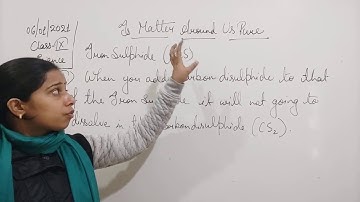 06/08/2021
Class-IX
Science
Is Matter Around Us Pure
Iron Sulphide (S)
When you add carbon disulphide to that
of the Iron Sulphide it will not going to
dissolve in carbon disulphide (CS2).